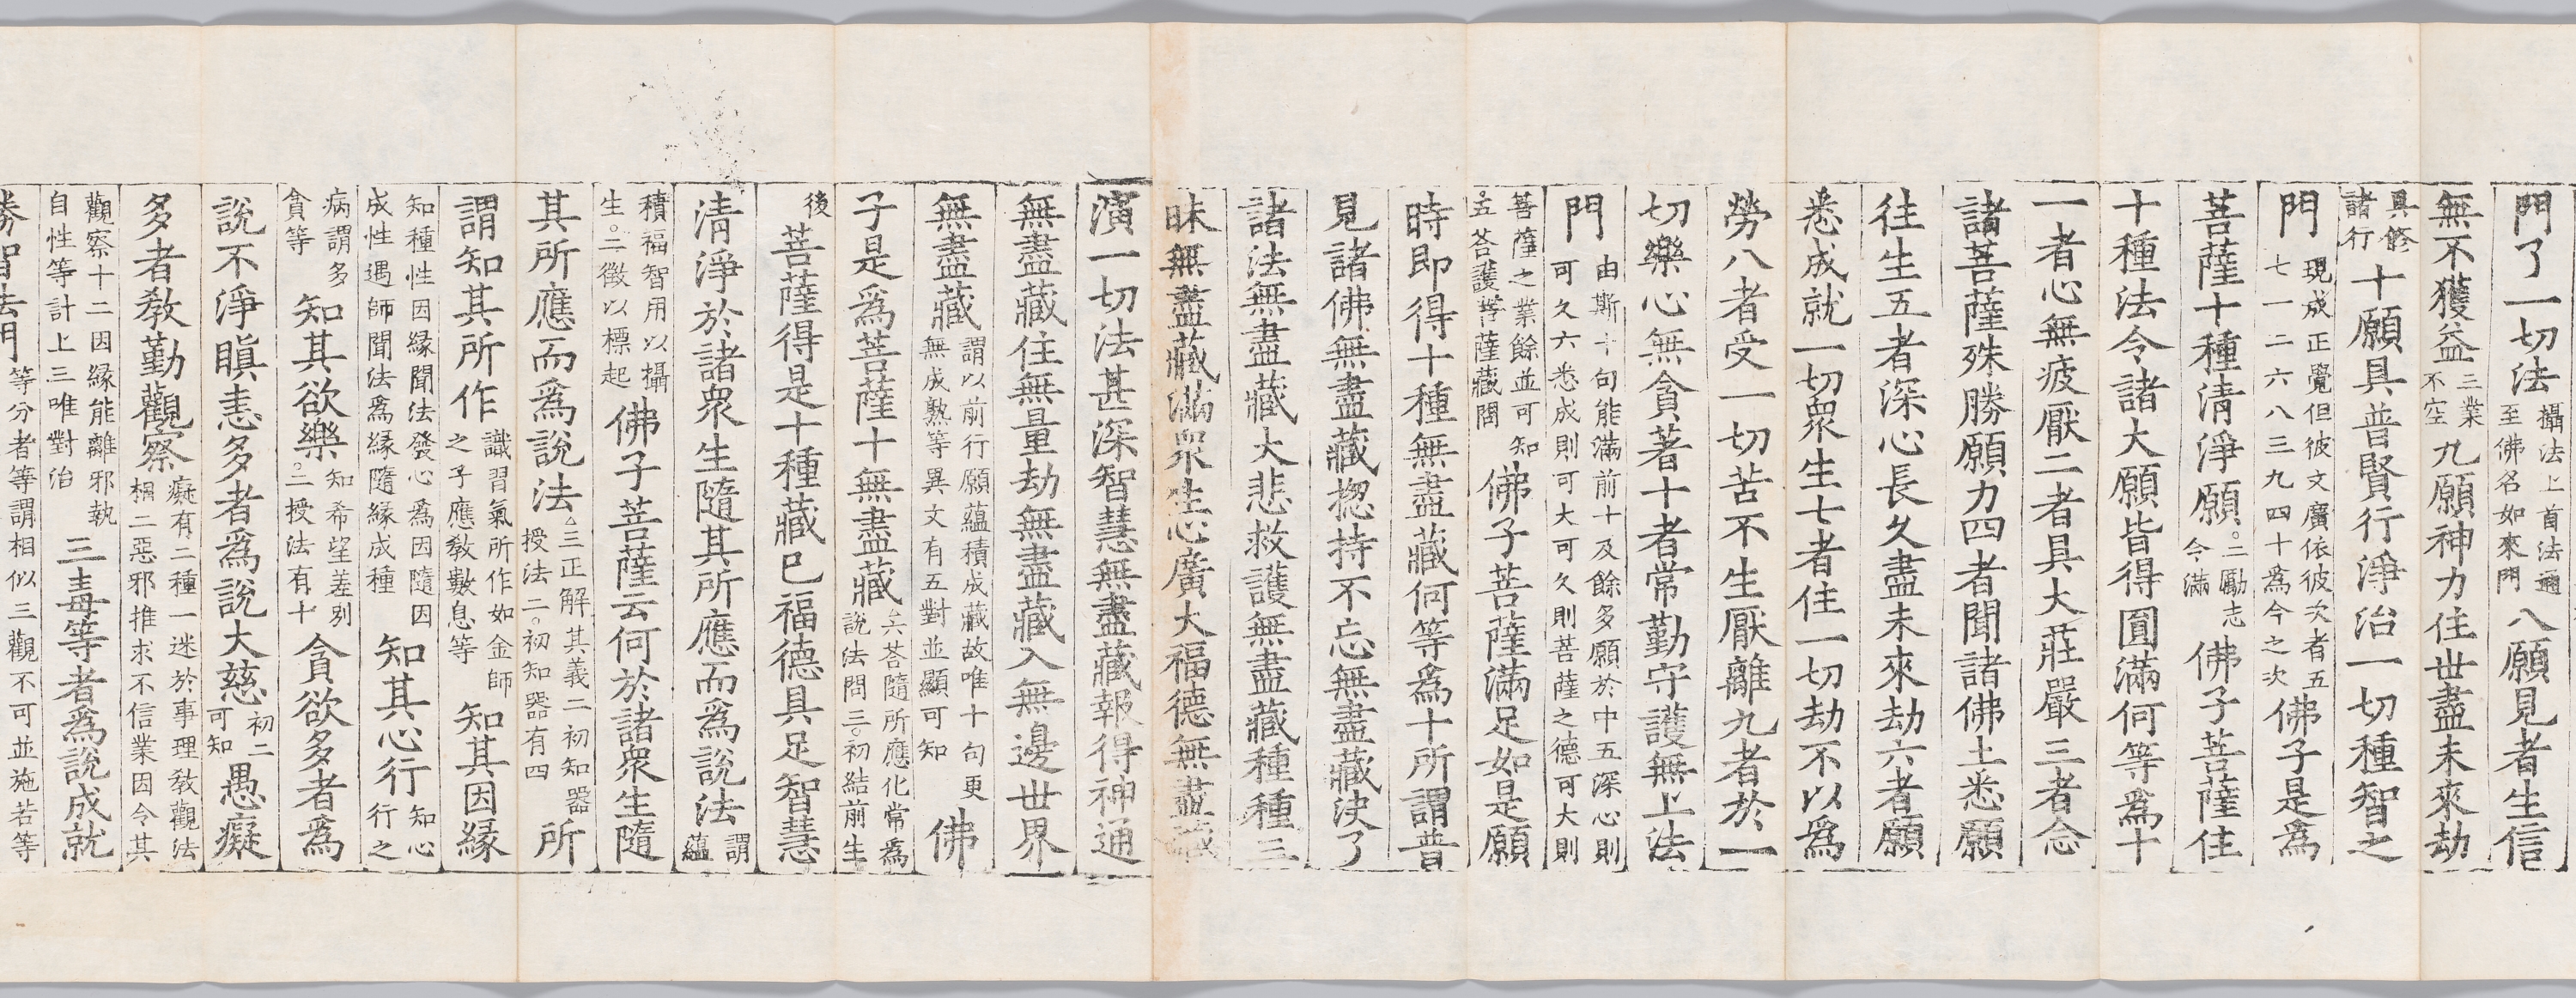 門了一切法攝法上首法通至佛名如來門八願見者生信
無不獲益三業不空九願神力住世盡未來劫
具修諸行十願具普賢行淨治一切種智之
門現成正覺但彼文廣依彼次者五七一二六八三九四十爲今之次佛子是爲
菩薩十種清淨願○二勵志令滿佛子菩薩住
十種法令諸大願皆得圓滿何等爲十
一者心無疲厭二者具大莊嚴三者念
諸菩薩殊勝願力四者聞諸佛土悉願
往生五者深心長久盡未來劫六者願
悉成就一切衆生七者住一切劫不以爲
勞八者受一切苦不生厭離九者於一
切樂心無貪著十者常勤守護無上法
門由斯十句能滿前十及餘多願於中五深心則可久六悉成則可大可久則菩薩之德可大則
菩薩之業餘並可知○五荅護菩薩藏問佛子菩薩滿足如是願
時即得十種無盡藏何等爲十所謂普
見諸佛無盡藏揔持不忘無盡藏決了
諸法無盡藏大悲救護無盡藏種種三
昧無盡藏滿衆生心廣大福德無盡藏
演一切法甚深智慧無盡藏報得神通
無盡藏住無量劫無盡藏入無邊世界
無盡藏謂以前行願蘊積成藏故唯十句更無成熟等異文有五對並顯可知佛
子是爲菩薩十無盡藏△六荅隨所應化常爲說法問三○初結前生
後菩薩得是十種藏已福德具足智慧
清淨於諸衆生隨其所應而爲說法謂蘊
積福智用以攝生○二徵以標起佛子菩薩云何於諸衆生隨
其所應而爲說法△三正解其義二初知器授法二○初知器有四所
謂知其所作識習氣所作如金師之子應敎數息等知其因緣
知種性因緣聞法發心爲因隨因成性遇師聞法爲緣隨緣成種知其心行知心行之
病謂多貪等知其欲樂知希望差别○二授法有十貪欲多者爲
說不淨瞋恚多者爲說大慈初二可知愚癡
多者敎勤觀察癡有二種一迷於事理敎觀法相二惡邪推求不信業因令其
觀察十二因緣能離邪執自性等計上三唯對治三毒等者爲說成就
勝智法門等分者等謂相似三觀不可並施若等